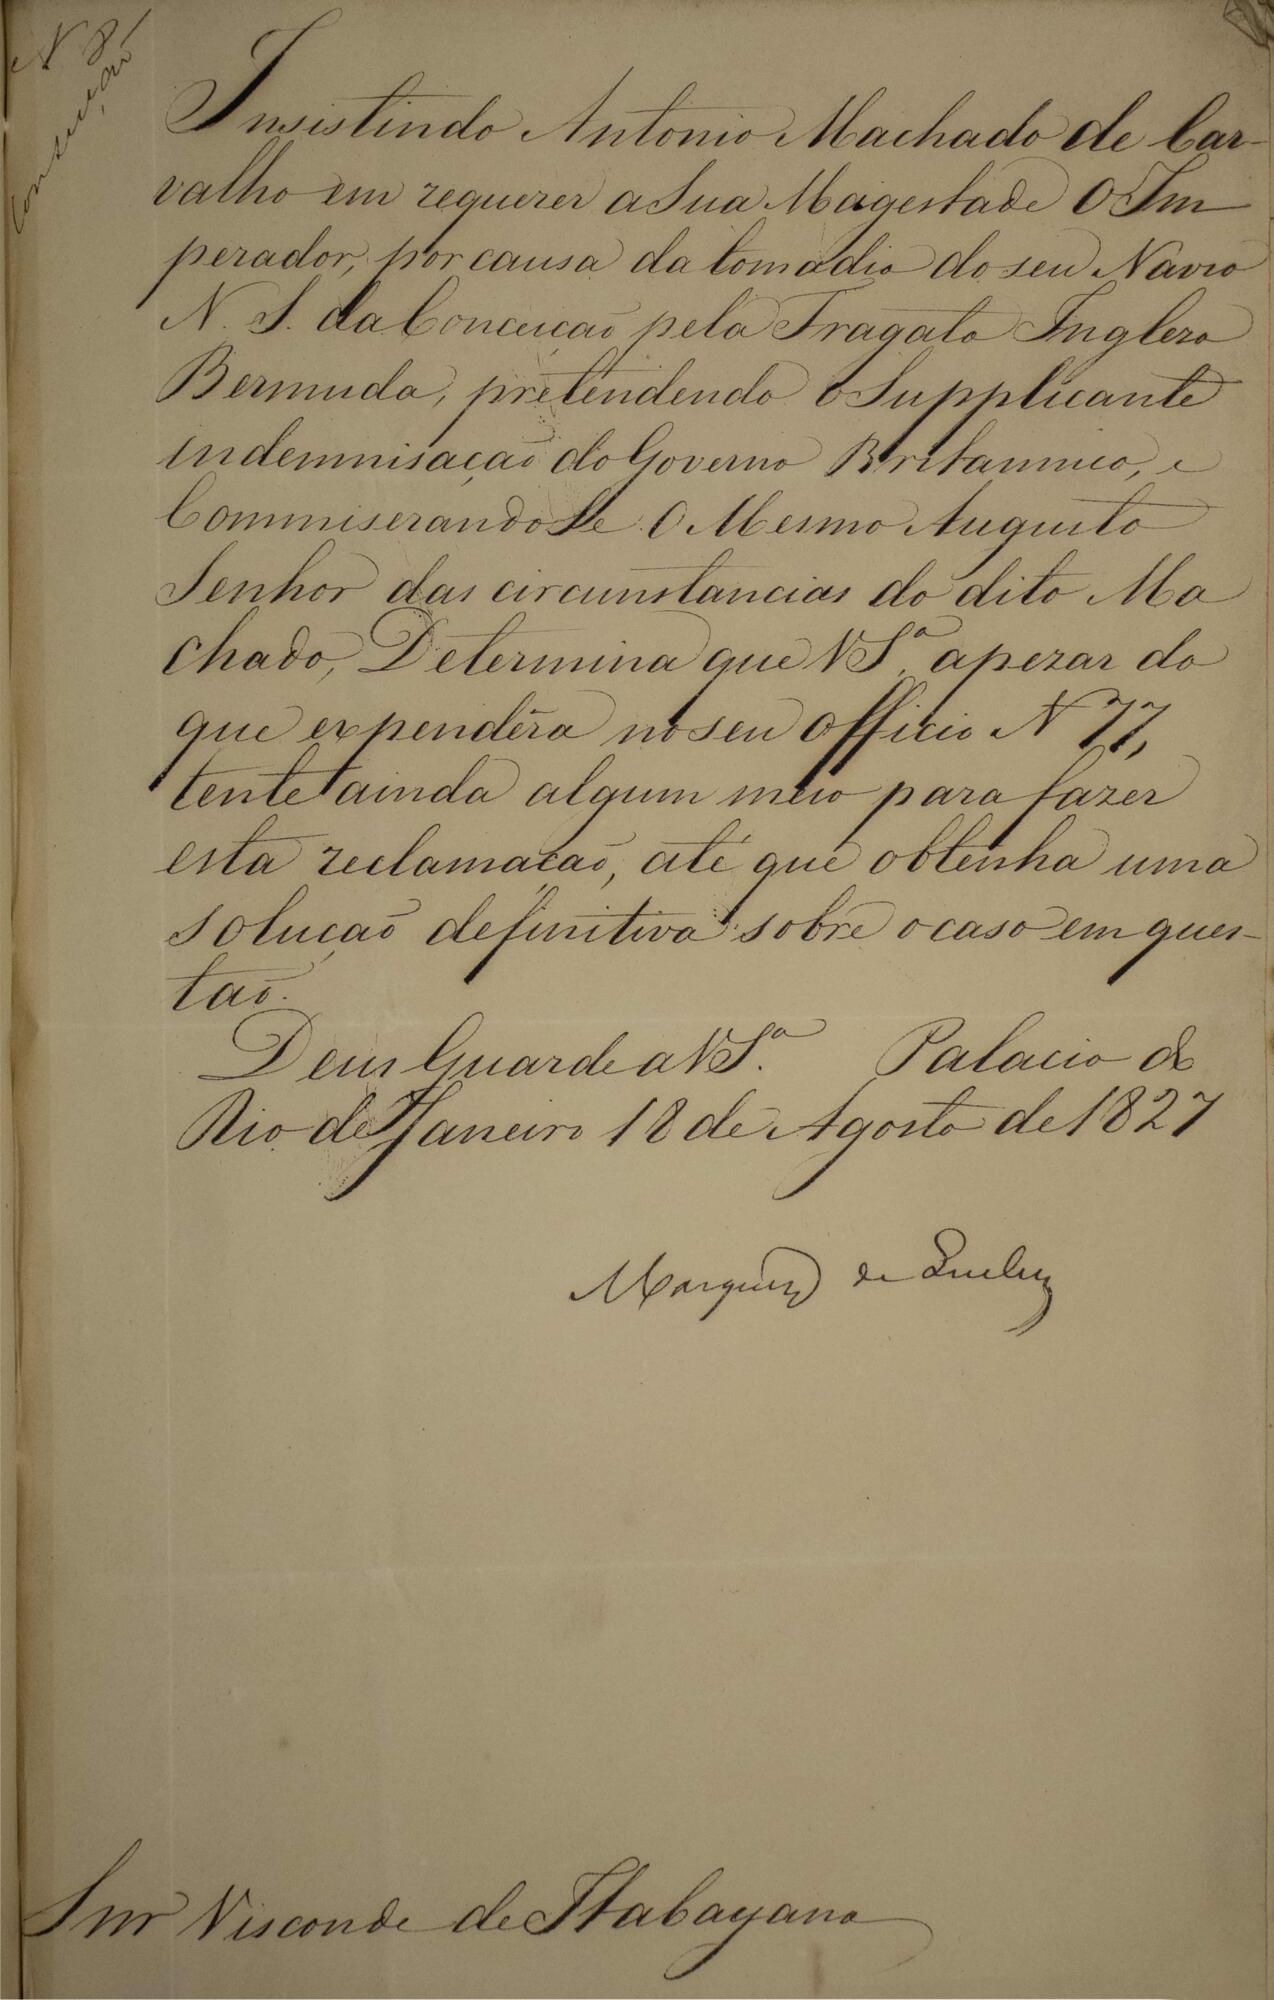 N 8
Conceição
Insistindo Antonio Machado de Car-
valho em requerer a Sua Magestade O Im
perador, por causa da tomadia do seu Navio
N. S. da Conceição pela Fragata Ingleza
Bermuda, pretendendo o Supplicante
indemnisação do Governo Britannico, e
Commiserando Se O Mesmo Augusto
Senhor das circunstancias do dito Ma
chado, Determina que V Sª. apezar do
que expendêra no seu officio N 77,
tente ainda algum meio para fazer
esta reclamação, até que obtenha uma
solução definitiva sobre o caso em ques-
tão.
Deus Guarde a V Sª. Palacio do
Rio de Janeiro 18 de Agosto de 1827
Marquez de Queluz
Snr Visconde de Itabayana